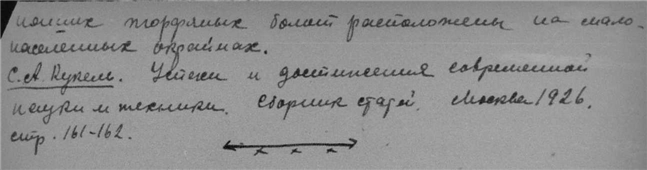 ноших торфяных болот расположены на мало-
населенных окраинах.
С. А. Кукель. Успехи и достижения современной
науки и техники. Сборник статей. Москва 1926.
стр. 161-162.